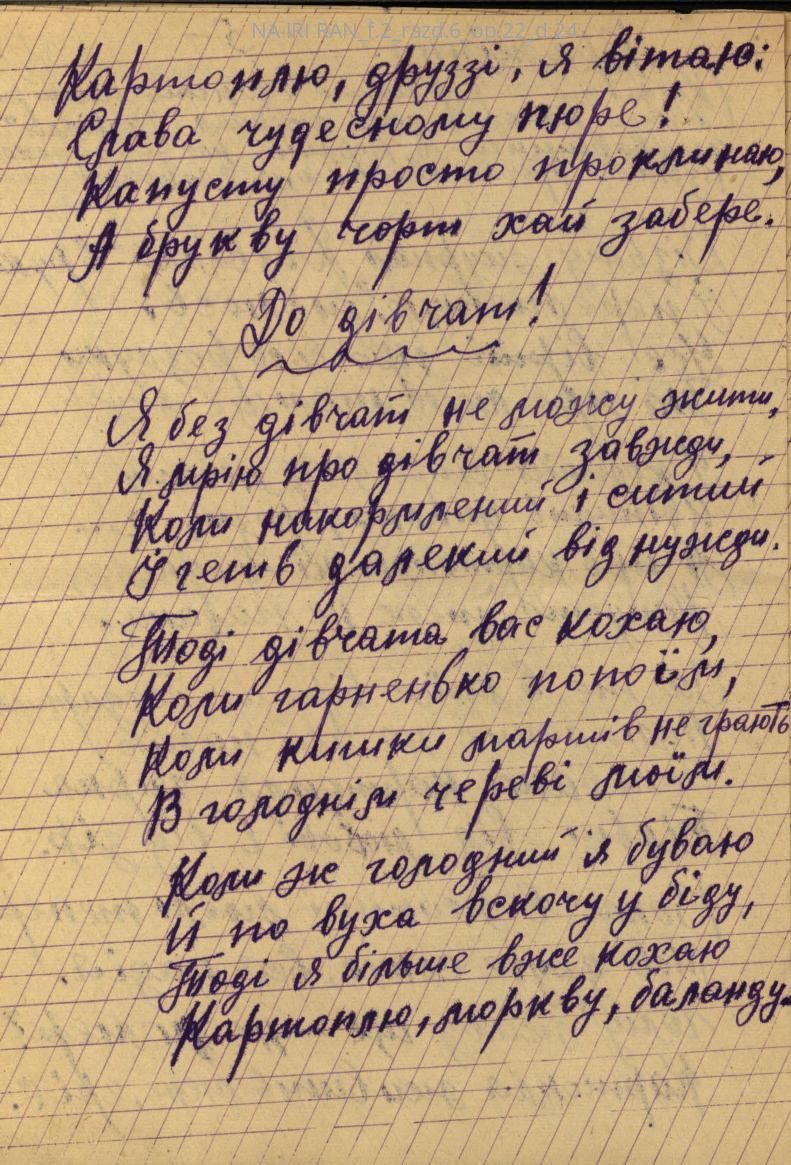 NA IRI RAN_f.2_razd.6_op.22_d.24
Картоплю, друззі, я вітаю:
Слава чудесному пюре!
Капусту просто проклинаю,
А брукву чорт хай забере.
До дівчат!
Я без дівчат не можу жити,
Я мрію про дівчат завжди,
Коли накормлений і ситий
Й геть далекий від нужди.
Тоді дівчата вас кохаю,
Коли гарненько попоїм,
Коли кишки мартів не грають
В голоднім череві моїм.
Коли ж голодний я буваю
Й по вуха вскочу у біду,
Тоді я більше вже кохаю
Картоплю, моркву, баланду.